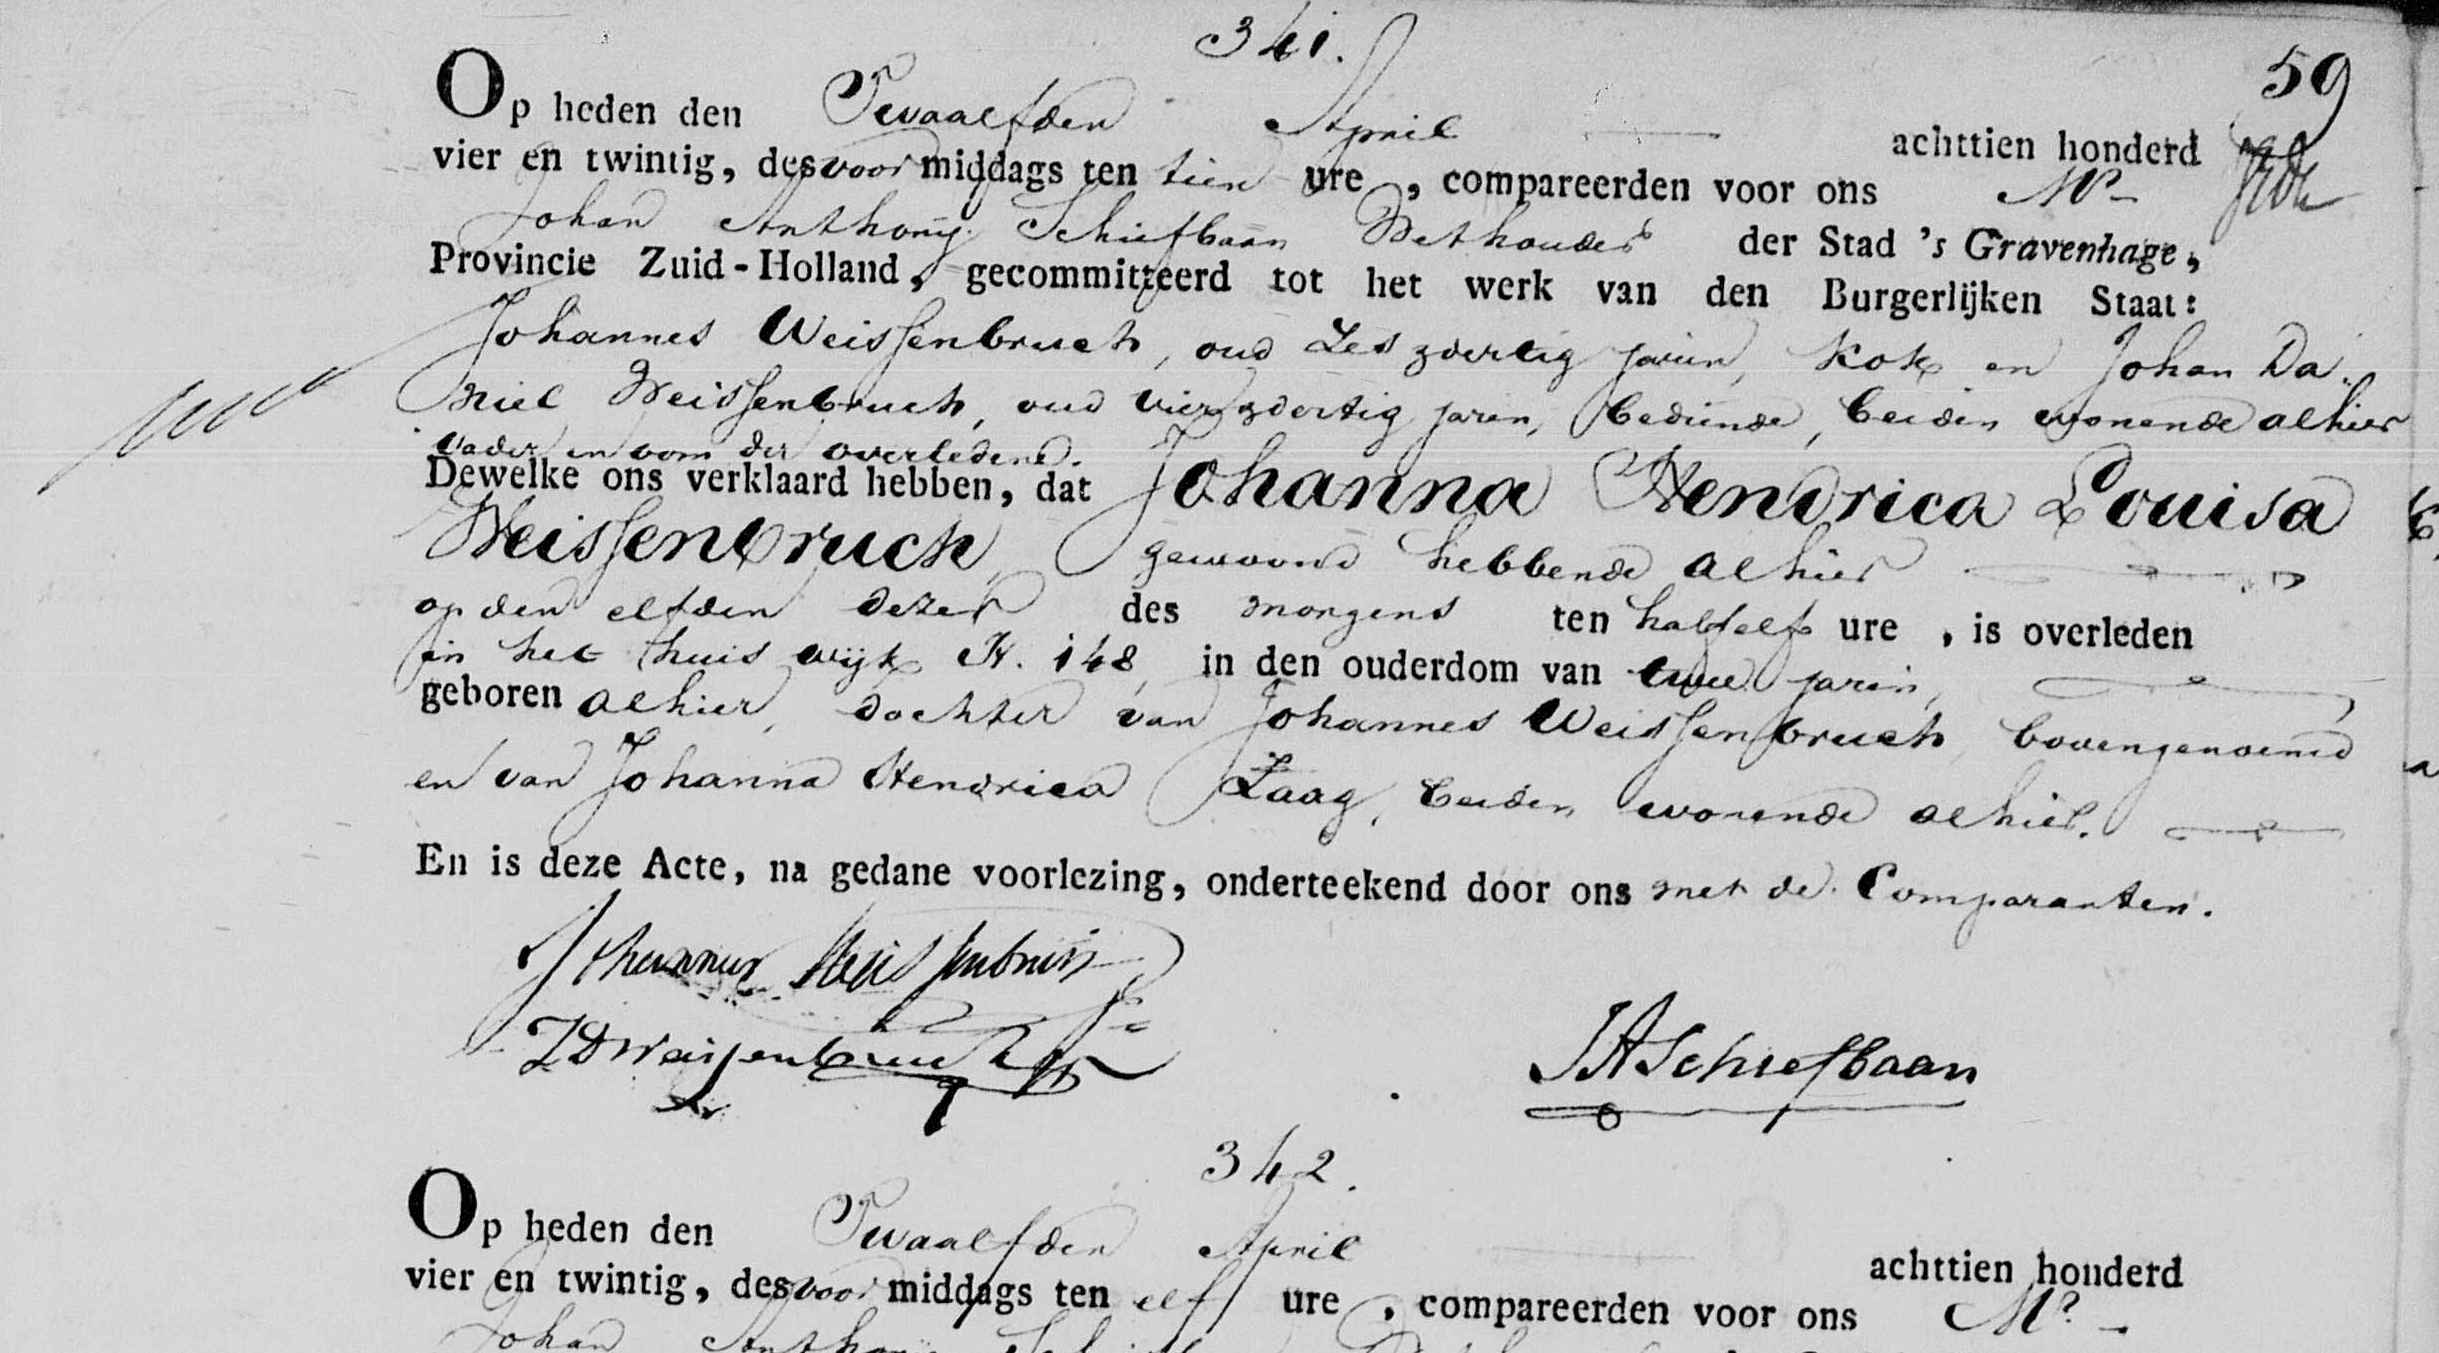 341.
59
Op heden den Twaalfden April achttien honderd
vier en twintig, des voor middags ten tien ure, compareerden voor ons Mr
Johan Anthony Schiefbaan Wethouder der Stad 's Gravenhage,
Provincie Zuid-Holland, gecommitteerd tot het werk van den Burgerlijken Staat:
Johannes Weissenbruch, oud Zes zdertig jaren, Kok en Johan Da
niel Weissenbruch, oud vier zdertig jaren, bediende, beiden wonende alhier
vader en oom der overledene.
Dewelke ons verklaard hebben, dat Johanna Hendrica Louisa
Weissenbruch, gewoond hebbende alhier
op den elfden dezer des morgens ten half elf ure, is overleden
in het huis wijk K. 148, in den ouderdom van twee jaren,
geboren alhier, dochter van Johannes Weissenbruch, bovengenoemd
en van Johanna Hendrica Zaag, beiden wonende alhier.
En is deze Acte, na gedane voorlezing, onderteekend door ons met de Comparanten.
Johannes Weissenbruch
JD Weissenbruch
JA Schiefbaan
342.
Op heden den Twaalfden April achttien honderd
vier en twintig, des voor middags ten elf ure, compareerden voor ons Mr
Johan Anthony